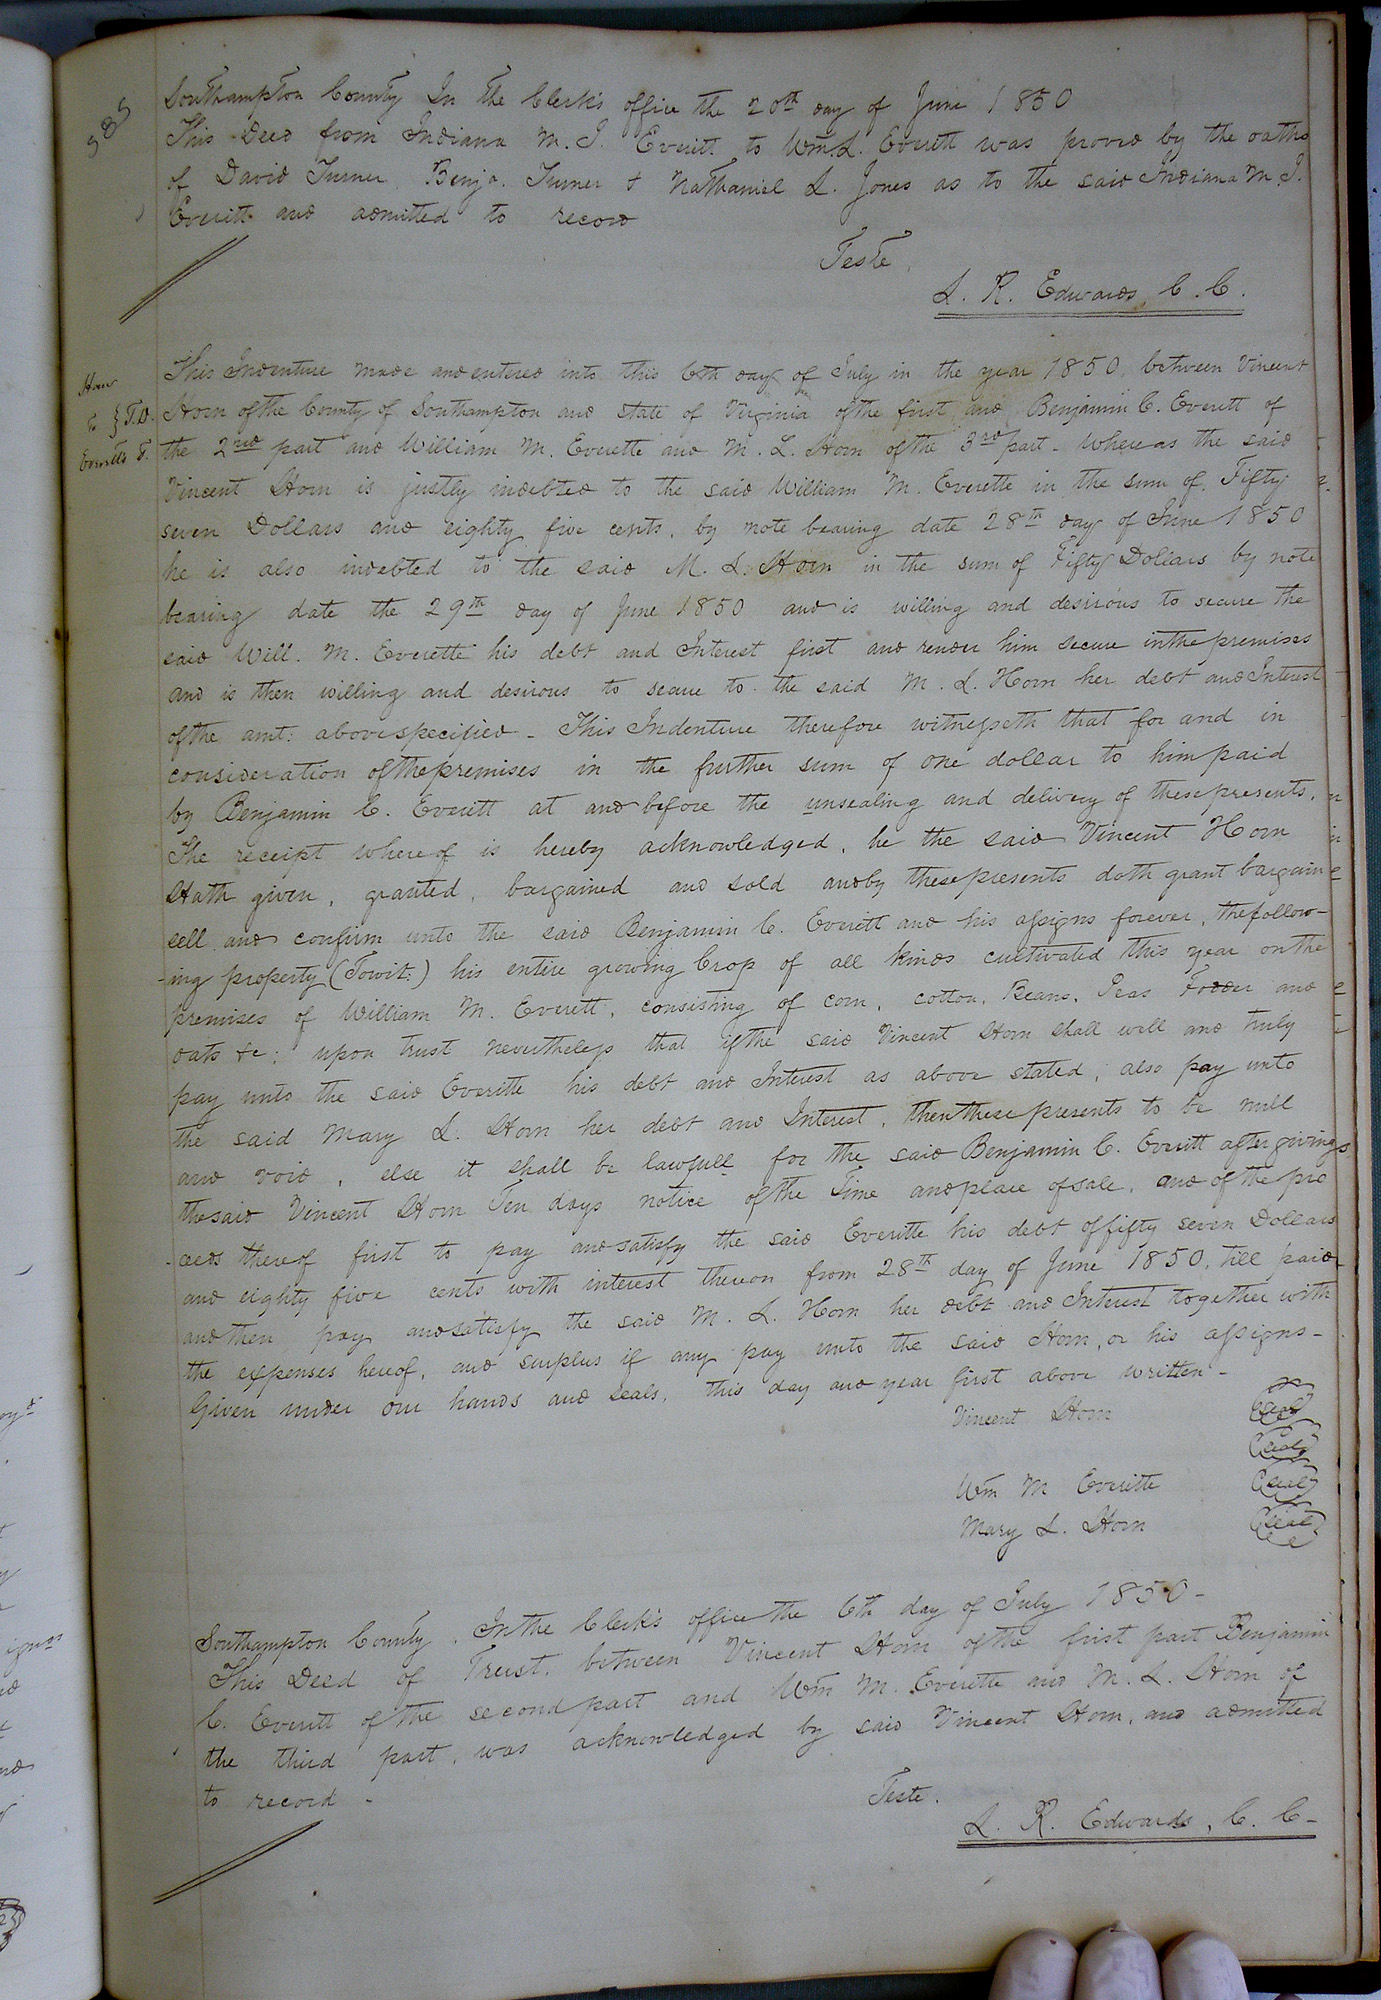 585
Southampton County In the Clerk's office the 20th day of June 1850
This Deed from Indiana M. J. Everitt to Wm L. Everitt was proved by the oaths
of David Turner, Benja. Turner & Nathaniel L. Jones as to the said Indiana M. J.
Everitt and admitted to record
Teste,
L. R. Edwards, C. C.
Horn
to } T.D.
Everitts T.
This Indenture made and entered into this 6th day of July in the year 1850, between Vincent
Horn of the County of Southampton and state of Virginia of the first and Benjamin C. Everitt of
the 2nd part and William M. Everette and M. L. Horn of the 3rd part - Whereas the said
Vincent Horn is justly indebted to the said William M. Everette in the sum of Fifty
seven Dollars and eighty five cents, by note bearing date 28th day of June 1850
he is also indebted to the said M. L. Horn in the sum of Fifty Dollars by note
bearing date the 29th day of June 1850 and is willing and desirous to secure the
said Will. M. Everette his debt and Interest first and render him secure in the premises
and is then willing and desirous to secure to the said M. L. Horn her debt and Interest
of the amt: above specified - This Indenture therefore witnesseth that for and in
consideration of the premises in the further sum of one dollar to him paid
by Benjamin C. Everitt at and before the unsealing and delivery of these presents,
The receipt whereof is hereby acknowledged, he the said Vincent Horn
Hath given, granted, bargained and sold and by these presents doth grant bargain
sell and confirm unto the said Benjamin C. Everitt and his assigns forever, the follow-
-ing property (Towit:) his entire growing Crop of all kinds cultivated this year on the
premises of William M. Everett, consisting of corn, cotton, Beans, Peas Fodder and
oats &c: upon trust nevertheless that if the said Vincent Horn shall well and truly
pay unto the said Everitte his debt and Interest as above stated, also pay unto
the said Mary L. Horn her debt and Interest, then these presents to be null
and void, else it shall be lawfull for the said Benjamin C. Everitt after giving
the said Vincent Horn Ten days notice of the Time and place of sale, and of the pro
-ceeds thereof first to pay and satisfy the said Everitte his debt of fifty seven Dollars
and eighty five cents with interest thereon from 28th day of June 1850, till paid
and then pay and satisfy the said M. L. Horn her debt and Interest together with
the expenses hereof, and surplus if any pay unto the said Horn, or his assigns -
Given under our hands and seals, this day and year first above written -
Vincent Horn (seal)
(seal)
Wm M Everitte (seal)
Mary L. Horn (seal)
Southampton County. In the Clerk's office the 6th day of July 1850 -
This Deed of Trust, between Vincent Horn of the first part Benjamin
C. Everitt of the second part and Wm M. Everette and M. L. Horn of
the third part, was acknowledged by said Vincent Horn, and admitted
to record -
Teste.
L. R. Edwards, C. C -